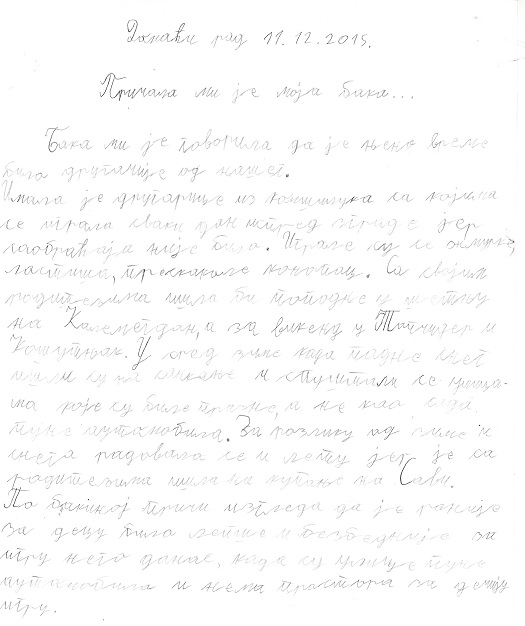 Домаћи рад 11.12.2015.
Причала ми је моја бака...
Бака ми је говорила да је њено време
било другачије од нашег.
Имала је другарице из комшилука са којима
се играла сваки дан испред зграде јер
саобраћаја није било. Играле су се
ластиша, прескакале конопац. Са својим
родитељима ишла би поподне у шетњу
на Калемегдан, а за викенд у Топчидер и
Кошутњак. У сред зиме када падне снег
ишли су на санкање и спуштали се улица-
ма које су биле празне, а не као сада
пуне аутомобила. За разлику од зиме и
снега радовала се и лету јер је са
родитељима ишла на купање на Саву.
По бакиној причи изгледа да је раније
за децу било лепше и безбедније за
игру него данас, када су улице пуне
аутомобила и нема простора за дечију
игру.